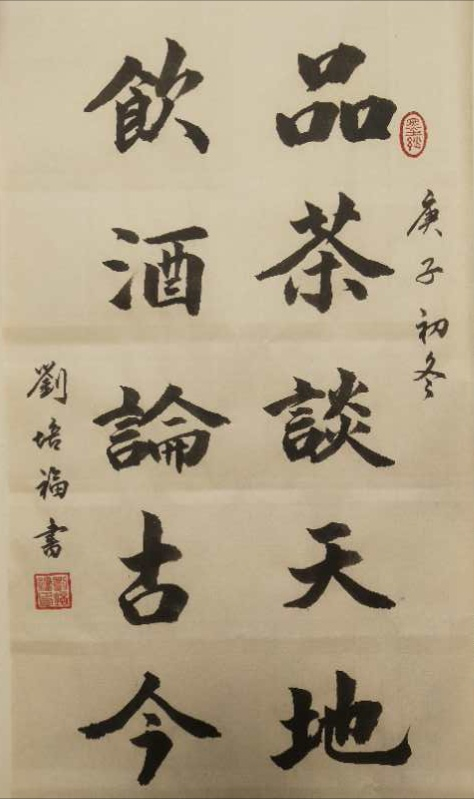 庚子初冬
品茶談天地
飲酒論古今
劉培福書